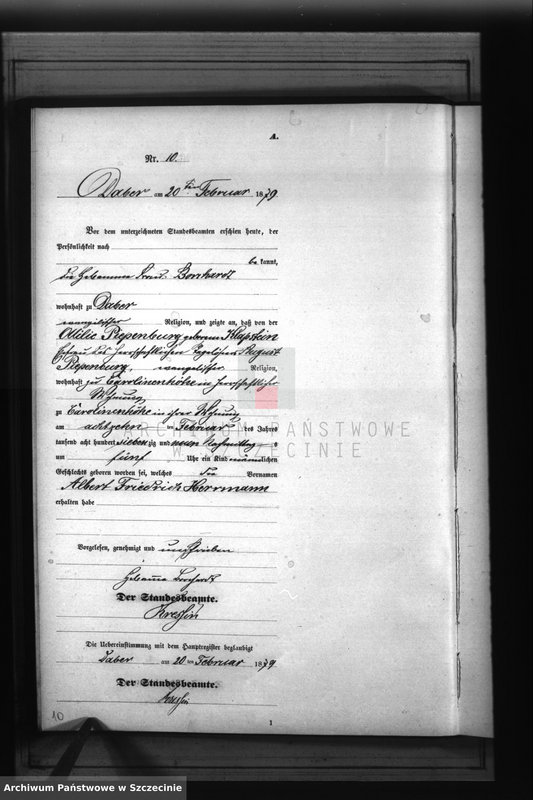 A.
Nr. 10.
Daber am 20 ten Februar 1879.
Vor dem unterzeichneten Standesbeamten erschien heute, der
Persönlichkeit nach
be kannt,
die Hebamme Frau Borchardt
wohnhaft zu Daber
evangelischer Religion, und zeigte an, daß von der
Ottilie Piepenburg geborenen Klapstein
Ehefrau des herrschaftlichen Tagelöhners August
Piepenburg, evangelischer Religion,
wohnhaft zu Carolinenhöhe in herrschaftlicher
Wohnung
zu Carolinenhöhe in ihrer Wohnung
am achtzehn ten Februar des Jahres
tausend acht hundert siebenzig und neun Nachmittags
um fünf Uhr ein Kind männlichen
Geschlechts geboren worden sei, welches die Vornamen
Albert Friedrich Herrmann
erhalten habe
Vorgelesen, genehmigt und unterschrieben
Hebamme Borchardt
Der Standesbeamte.
Kressin
Die Uebereinstimmung mit dem Hauptregister beglaubigt
Daber am 20 ten Februar 1879
Der Standesbeamte.
Kressin
1
10
ARCHIWUM PAŃSTWOWE
W SZCZECINIE
Archiwum Państwowe w Szczecinie